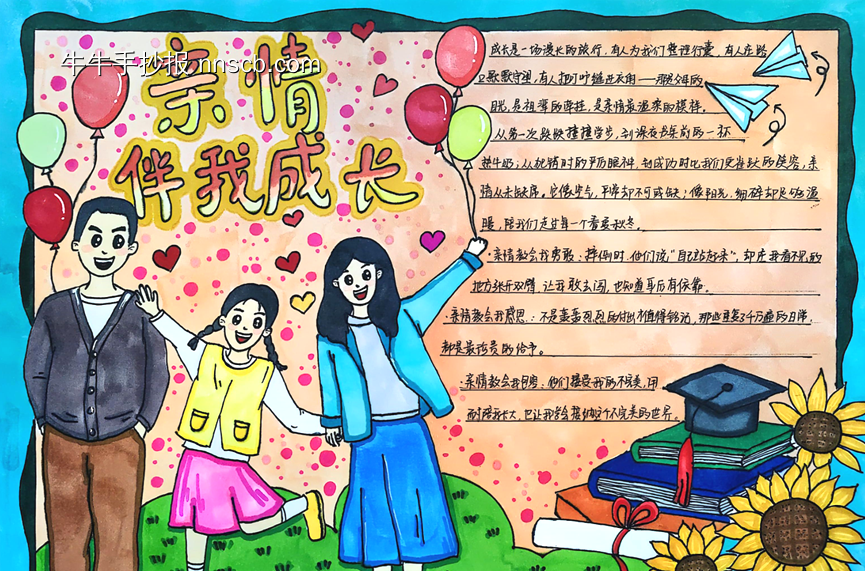 牛牛手抄报 nnscb.com
亲情
伴我成长
成长是一场漫长的旅行,有人为我们整理行囊,有人在路
口默默守望,有人把叮咛缝进衣角——那是父母的
目光,是祖辈的牵挂,是亲情最温柔的模样。
从第一次跌跌撞撞学步,到深夜书桌前的一杯
热牛奶;从犯错时的严厉眼神,到成功时比我们更
的笑容,亲
情从未缺席。它像空气,平常却不可或缺;像阳光,细碎却足够温
暖,陪我们走过每一个春夏秋冬。
·亲情教会我勇敢:摔倒时,他们说“自己站起来”,却在我看不见的
地方张开双臂,让我敢去闯,也知道身后有依靠。
·亲情教会我感恩:不是轰轰烈烈的付出才值得铭记,那些重复了千万遍的日常,
都是最珍贵的给予。
·亲情教会我
:他们接受我的不完美,用
耐心陪我长大,也让我学会
这个不完美的世界。